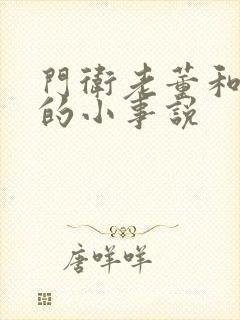 門衛老董和
的小事說
唐咩咩